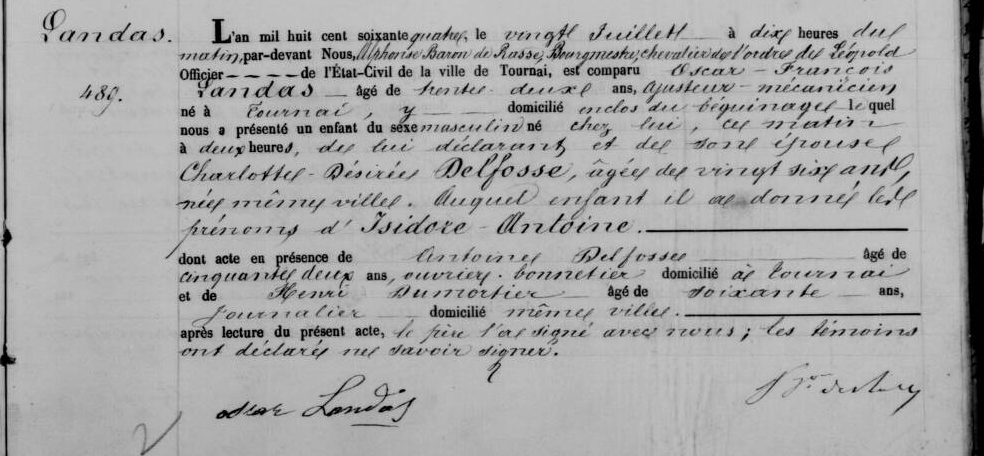 Landas.
489.
L'an mil huit cent soixante quatre, le vingt Juillet à dix heures du
matin, par-devant Nous, Alphonse Baron de Rasse, Bourgmestre, chevalier de l'ordre de Léopold
Officier de l'État-Civil de la ville de Tournai, est comparu Oscar - François
Landas âgé de trente-deux ans, ajusteur-mécanicien
né à Tournai, y domicilié enclos du béguinage le quel
nous a présenté un enfant du sexe masculin né chez lui, ce matin
à deux heures, de lui déclarant et de son épouse
Charlotte-Désirée Delfosse, âgée de vingt six ans,
née même ville. Auquel enfant il a donné les
prénoms d'Isidore-Antoine.
dont acte en présence de Antoine Delfosse âgé de
cinquante deux ans, ouvrier-bonnetier domicilié à Tournai
et de Henri Dumortier âgé de soixante ans,
Journalier domicilié même ville.
après lecture du présent acte, le père l'a signé avec nous; les témoins
ont déclaré ne savoir signer.
oscar Landas